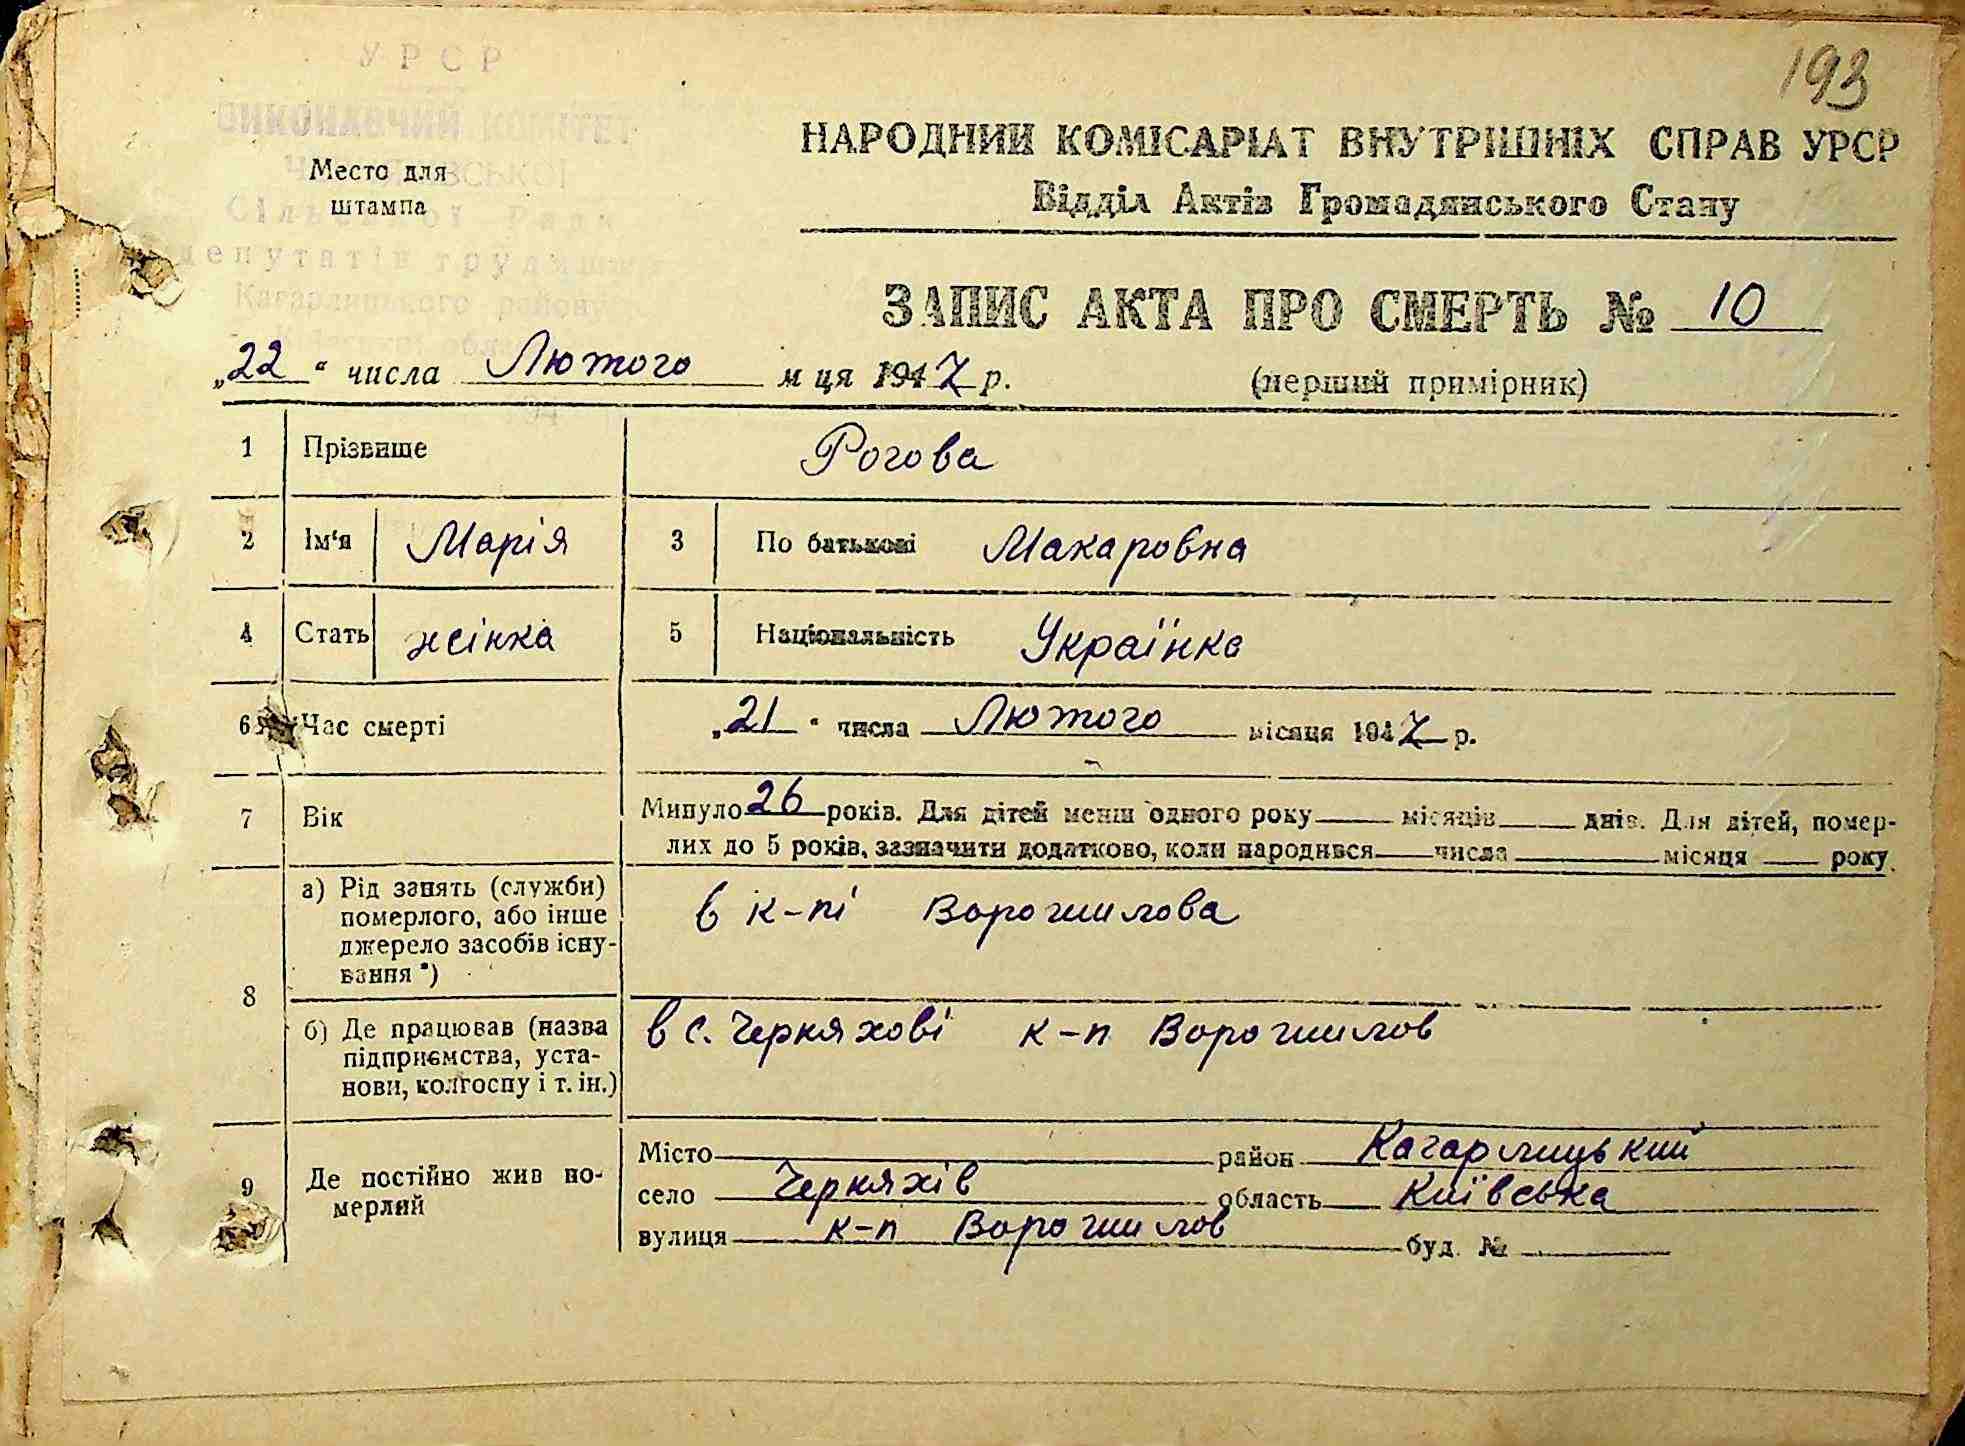 193
УРСР
ВИКОНАВЧИЙ КОМІТЕТ
Место для
штампа
депутатів трудящих
Кагарлицького району
НАРОДНИЙ КОМІСАРІАТ ВНУТРІШНІХ СПРАВ УРСР
Відділ Актів Громадянського Стану
ЗАПИС АКТА ПРО СМЕРТЬ № 10
„22“ числа Лютого м ця 1947 р. (перший примірник)
1 Прізвище Рогова
2 Ім'я Марія 3 По батькові Макаровна
4 Стать жінка 5 Національність Українка
6 Час смерті „21“ числа Лютого місяця 1947 р.
7 Вік Минуло 26 років. Для дітей менш одного року місяців днів. Для дітей, помер-
лих до 5 років, зазначити додатково, коли народився числа місяця року
8 а) Рід занять (служби)
померлого, або інше
джерело засобів існу-
вання *)
в к-пі Ворошилова
б) Де працював (назва
підприємства, уста-
нови, колгоспу і т. ін.)
в с. Черняхові к-п Ворошилов
9 Де постійно жив по-
мерлий
Місто район Кагарлицький
село Черняхів область Київська
вулиця к-п Ворошилов буд. №